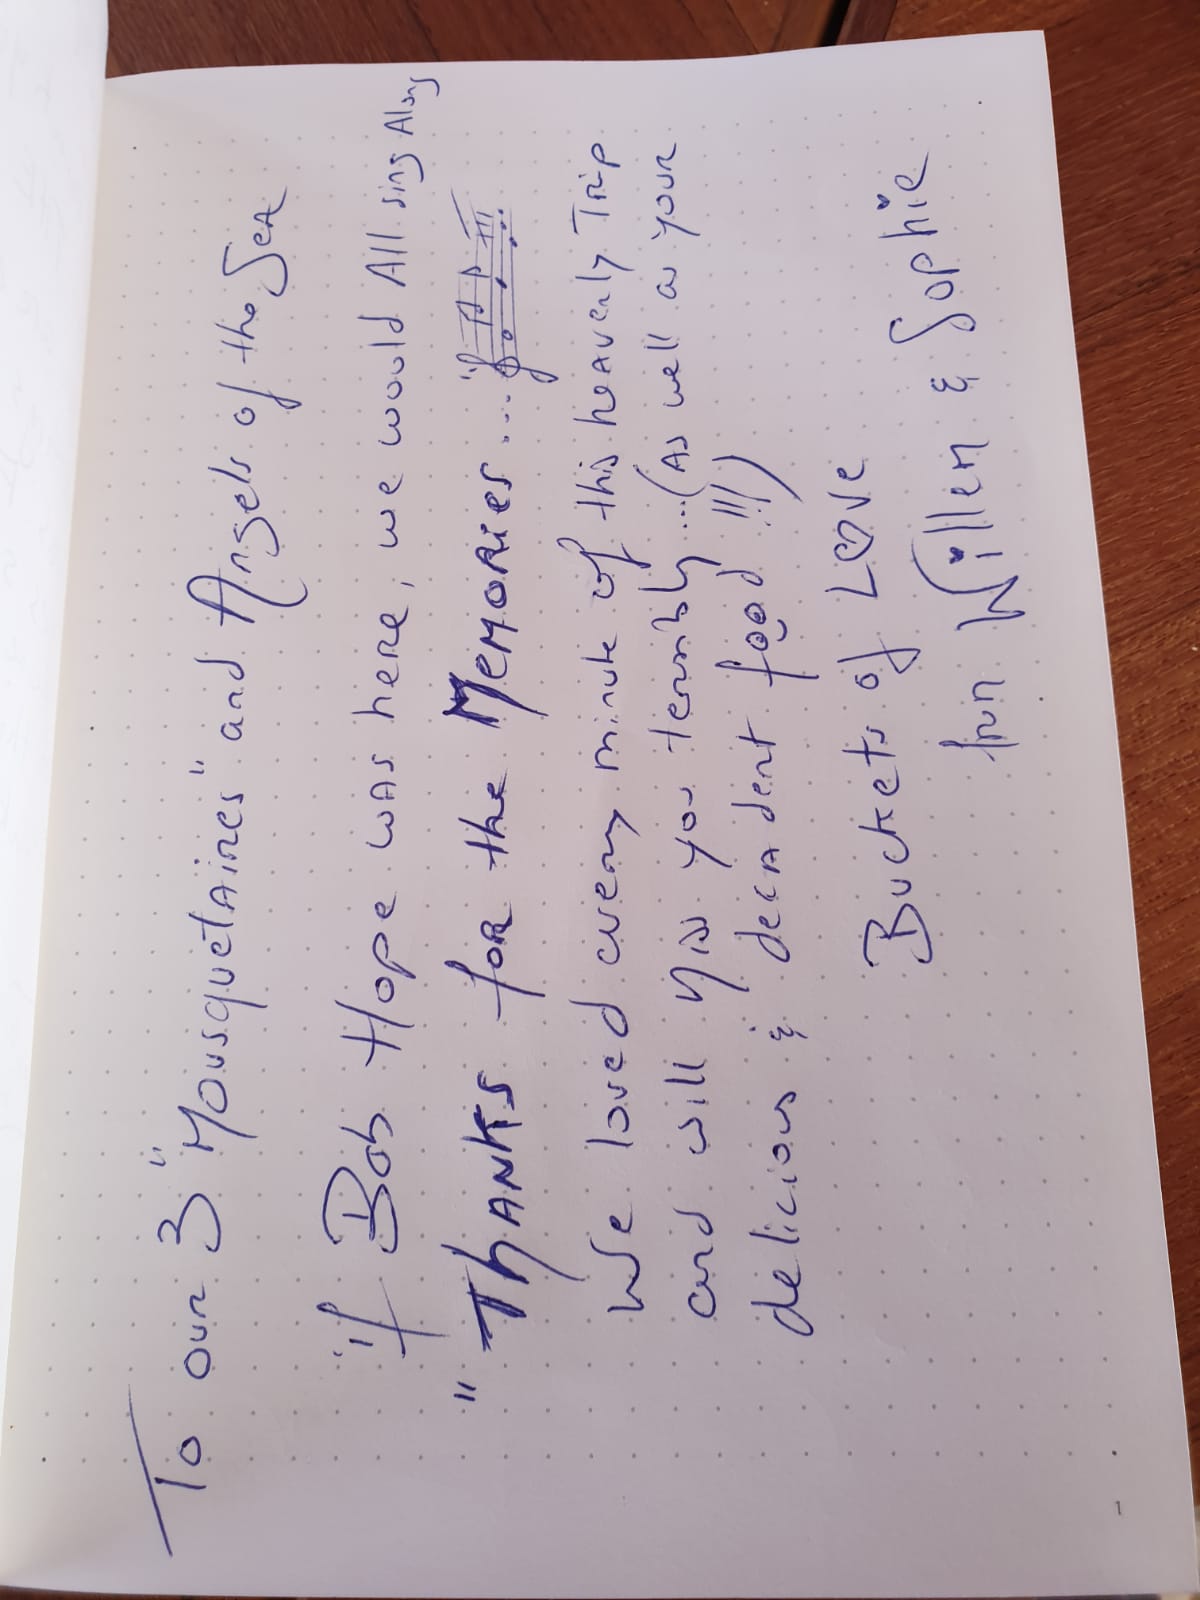 To our 3 "Mousquetaires" and Angels of the Sea
if Bob Hope was here, we would All sing Along
"Thanks for the Memories..."
We loved every minute of this heavenly Trip
and will miss you terribly... (As well as your
delicious & decadent food !!!)
Buckets of Love
from Willem & Sophie
1